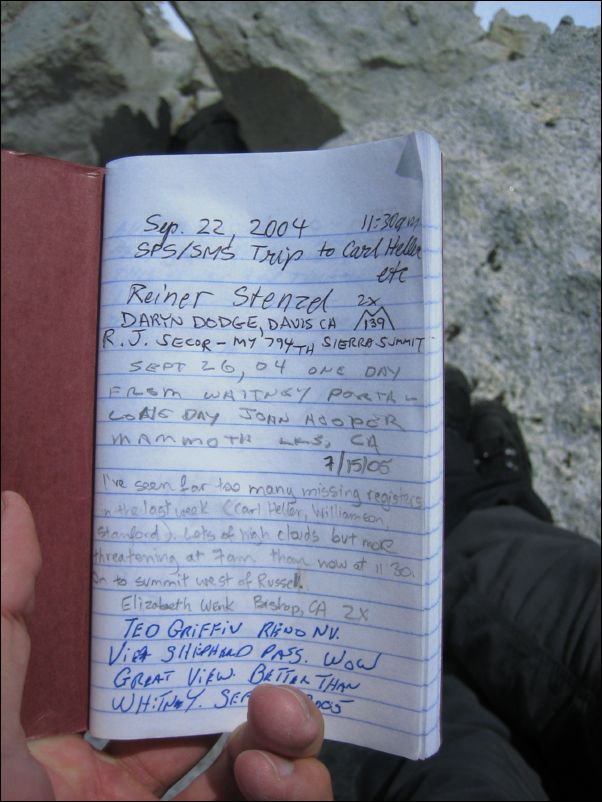 Sep. 22, 2004 11:30am
SPS/SMS Trip to Carl Heller
etc
Reiner Stenzel 2x
DARYN DODGE, DAVIS CA 139
R.J. SECOR - MY 794TH SIERRA SUMMIT
SEPT 26, 04 ONE DAY
FROM WHITNEY PORTAL
LONG DAY JOHN HOOPER
MAMMOTH LKS, CA
7/15/05
I've seen far too many missing registers
in the last week (Carl Heller, Williamson,
Stanford). Lots of high clouds but more
threatening at 7am than now at 11:30.
On to summit west of Russell.
Elizabeth Wenk Bishop, CA 2X
TED GRIFFIN RENO NV.
VIA SHEPHERD PASS. WOW
GREAT VIEW. BETTER THAN
WHITNEY.